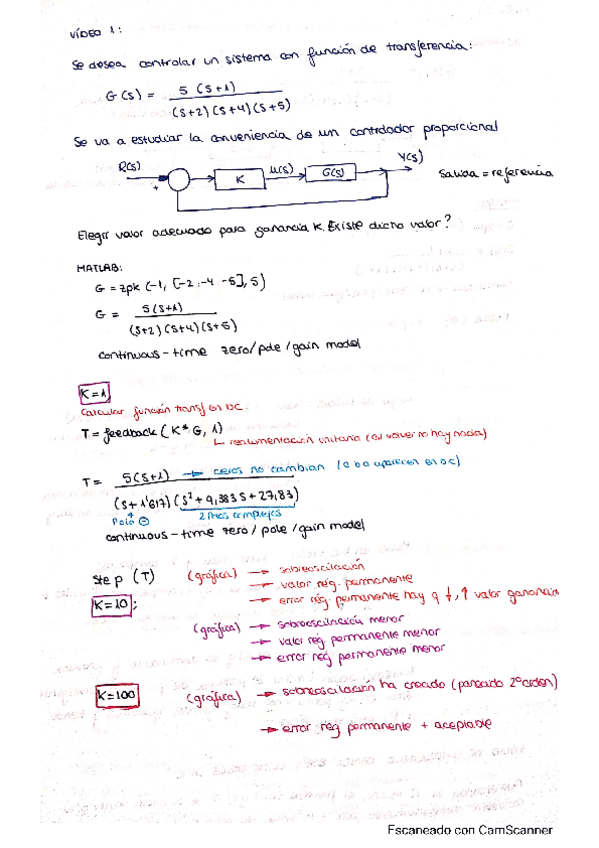 VÍDEO 1:
Se desea controlar un sistema con función de transferencia:
G(s) = 5(s+1)
(s+2)(s+4)(s+5)
Se va a estudiar la conveniencia de un controlador proporcional
R(s) + K U(s) G(s) Y(s) Salida = referencia
Elegir valor adecuado para ganancia K. Existe dicho valor?
MATLAB:
G = zpk(-1, [-2 -4 -5], 5)
G = 5(s+1)
(s+2)(s+4)(s+5)
continuous-time zero/pole/gain model
K=1
Calcular función transf en BC:
T = feedback(K*G, 1)
↳ realimentación unitaria (al volver no hay nada)
T = 5(s+1) → ceros no cambian (a BC aparecen en BC)
(s+1'617)(s²+9,383s+27,83)
Polo ⊖ 2 Polos complejos
continuous-time zero/pole/gain model
Step (T) (gráfica) → sobreoscilación
→ valor rég. permanente
K=10: → error rég. permanente hay q ↓, ↑ valor ganancia
(gráfica) → sobreoscilación menor
→ valor rég permanente menor
→ error rég permanente menor
K=100 (gráfica) → sobreoscilación ha crecido (parecido 2º orden)
→ error rég permanente + aceptable
Escaneado con CamScanner